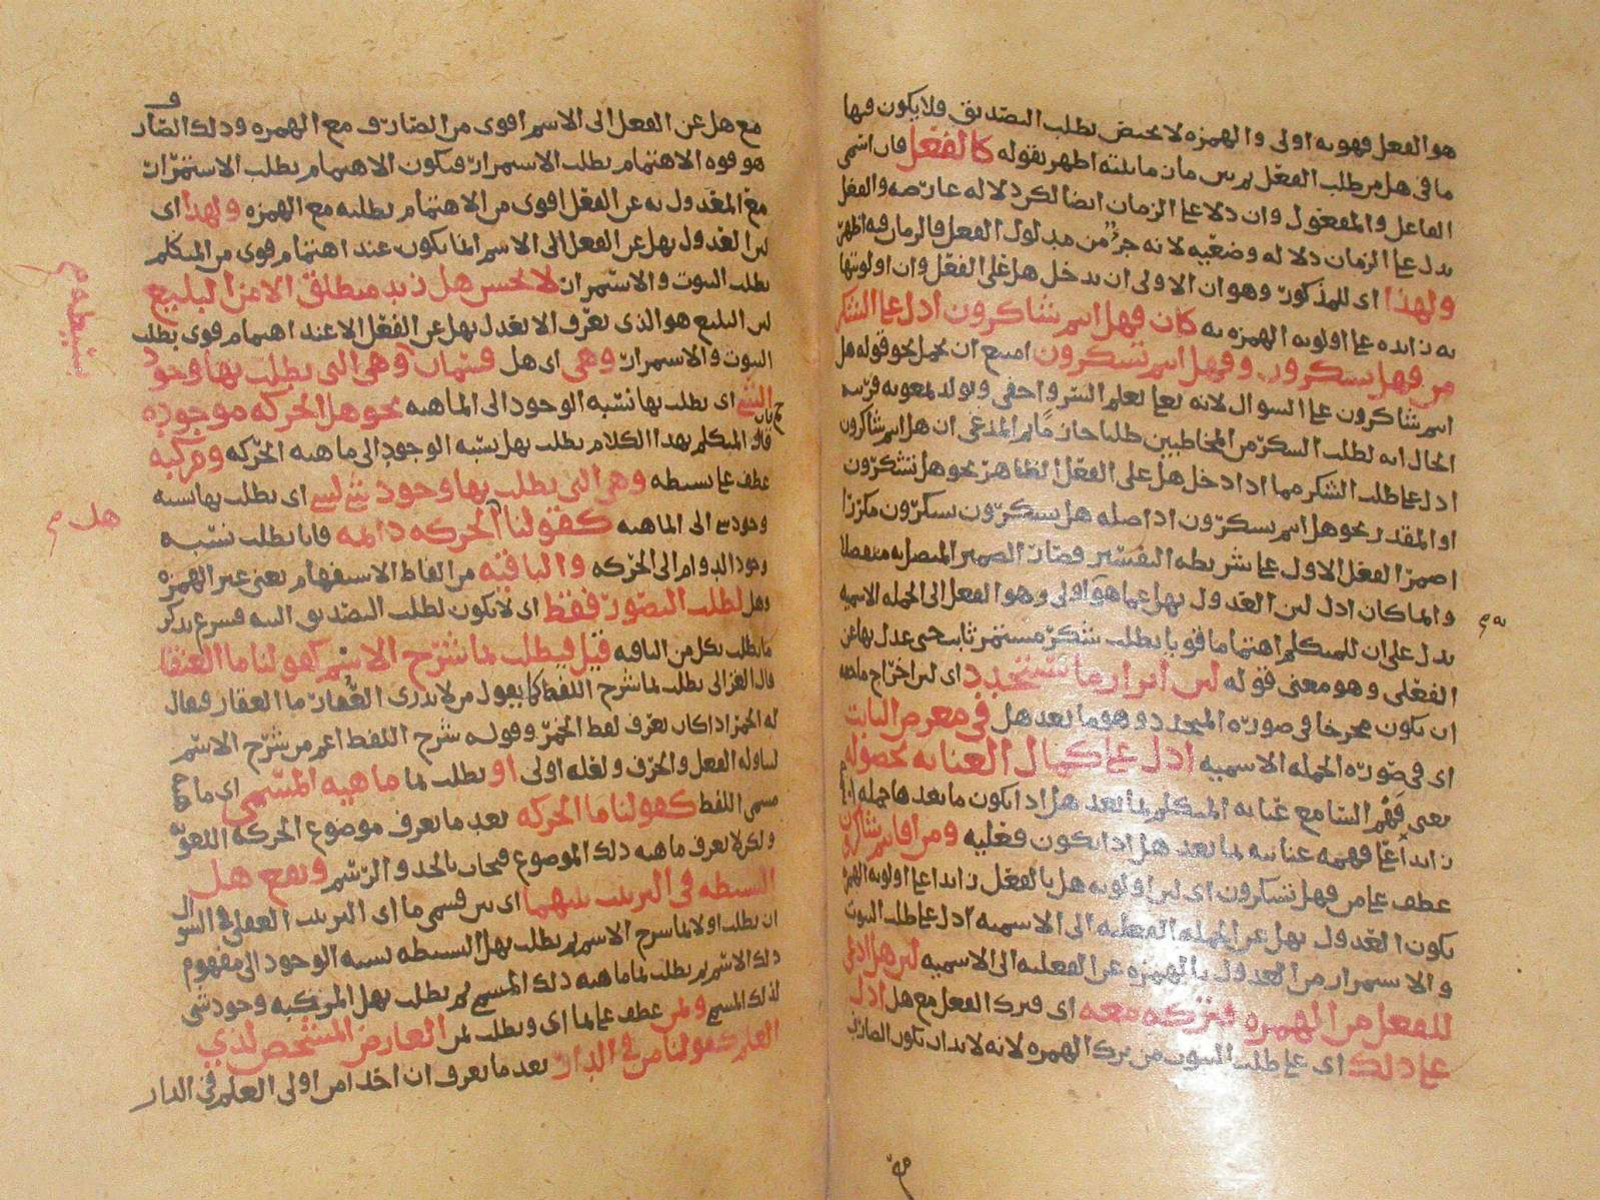 هو الفعل فهو به اولى والهمزه لا يختص بطلب التصديق فلا يكون فيها
ما في هل من طلب الفعل لم بين مان ماىلته اظهر بقوله كالفعل فان اسمى
الفاعل والمفعول وان دلا على الزمان ايضا لكن دلاله عارضه والفعل
يدل على الزمان دلاله وضعيه لانه جزء من مدلول الفعل فالزمان فيه اظهر
ولهذا اى للمذكور وهو ان الاولى ان يدخل هل على الفعل وان اولويتها
به زايده على اولويه الهمزه به كان فهل انتم شاكرون ادل على الشكر
من فهل تشكرون وفهل انتم تشكرون امتنع ان يحمل نحو قوله هل
انتم شاكرون على السوال لانه تعالى يعلم السر واخفى
الحال انه لطلب الشكر من المخاطبين ان هل انتم شاكرون
ادل على طلب الشكر مما اذا دخل هل على الفعل الظاهر نحو هل تشكرون
او المقدر نحو هل انتم تشكرون اذ اصله هل تشكرون تشكرون مكررا
اضمر الفعل الاول على شريطه التفسير فصار الضمير المتصل به منفصلا
وانما كان ادل لان العدول بهل عما هو اولى وهو الفعل الى الجمله الاسميه
يدل على ان للمتكلم اهتماما قويا بطلب شكر مستمر ثابت حتى عدل بها عن
الفعلى وهو معنى قوله لان ابراز ما يتجدد اى لان اخراج ما حقه
ان يكون مخرجا في صوره المتجدد وهو ما بعد هل في معرض الثابت
اى في صوره الجمله الاسميه ادل على كمال العنايه بحصوله
يعنى فهم السامع عنايه المتكلم لما بعد هل اذا يكون ما بعدها جمله
زايد على فهمه عنايته لما بعد هل اذا يكون فعليه ومن افانتم شاكرون
عطف على من فهل تشكرون اى لان اولويه هل بالفعل زايد على اولويه الهمزه
يكون العدول بهل عن الجمله الفعليه الى الاسميه ادل على طلب الثبوت
والاستمرار من العدول بالهمزه عن الفعليه الى الاسميه لان هل ادعى
للفعل من الهمزه فتركه معه اى فترك الفعل مع هل ادل
على ذلك اى على طلب الثبوت من ترك الهمزه لانه لا بد ان يكون الصارف
مع هل عن الفعل الى الاسم اقوى من الصارف مع الهمزه وذلك الصارف
هو قوه الاهتمام بطلب الاستمرار فيكون الاهتمام بطلب الاستمرار
مع المعدول به عن الفعل اقوى من الاهتمام بطلبه مع الهمزه ولهذا اى
لان العدول بهل عن الفعل الى الاسم انما يكون عند اهتمام قوى من المتكلم
بطلب الثبوت والاستمرار لا يحسن هل زيد منطلق الا من البليغ
لان البليغ هو الذى يعرف الا يعدل بهل عن الفعل الا عند اهتمام قوى بطلب
الثبوت والاستمرار وهى اى هل قسمان وهى التى يطلب بها وجود
الشئ اى يطلب بها نسبه الوجود الى الماهيه نحو هل الحركه موجوده
فان المتكلم بهذا الكلام يطلب بهل نسبه الوجود الى ماهيه الحركه ومركبه
عطف على بسيطه وهى التى يطلب بها وجود شئ لشئ اى يطلب بها نسبه
وجود شى الى الماهيه كقولنا هل الحركه دائمه فانا نطلب نسبه
وجود الدوام الى الحركه والباقيه من الفاظ الاستفهام يعنى غير الهمزه
وهل لطلب التصور فقط اى لا يكون لطلب التصديق التبه فشرع يذكر
ما يطلب بكل من الباقيه قيل فيطلب بما شرح الاسم كقولنا ما العنقا
قال الغزالى يطلب بما شرح اللفظ كما يقول من لا يدرى العقار ما العقار فيقال
له الخمر اذا كان يعرف لفظ الخمر وقوله شرح اللفظ اعم من شرح الاسم
لتناوله الفعل والحرف ولعله اولى او يطلب بما ماهيه المسمى اى ما
مسمى اللفظ كقولنا ما الحركه بعد ما يعرف موضوع الحركه اللغوى
ولكن لا يعرف ماهيه ذلك الموضوع فيجاب بالحد والرسم ويقع هل
البسيطه في الترتيب بينهما اى بين قسمى ما اى الترتيب العقلى في السوال
ان يطلب اولا بما شرح الاسم ثم يطلب بهل البسيطه نسبه الوجود الى مفهوم
ذلك الاسم ثم يطلب بما ماهيه ذلك المسمى ثم يطلب بهل المركبه وجود شى
لذلك المسمى وبمن عطف على بما اى ويطلب بمن العارض المشخص لذى
العلم كقولنا من في الدار بعد ما يعرف ان احدا من اولى العلم في الدار
بسيطه م
هل م
به م